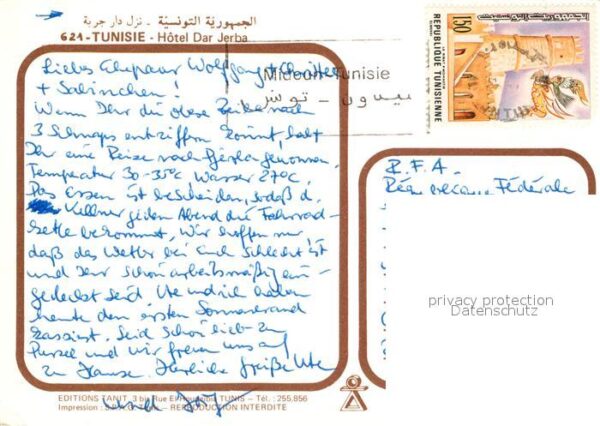 الجمهورية التونسية - نزل دار جربة
621 - TUNISIE - Hôtel Dar Jerba
Liebes Ehepaar Wolfgang
+ Sabinchen!
Wenn Ihr diese nach
3 Schnaps entziffern könnt, habt
Ihr eine Reise nach gewonnen.
Temperatur 30-35°C Wasser 27°C
Das Essen ist bescheiden, sodaß d.
Kellner jeden Abend die Fahrrad-
kette bekommt. Wir hoffen nur,
daß das Wetter bei Euch schlecht ist
und Ihr schon arbeitsmäßig ein-
gedeckt seid. Ute und ich haben
heute den ersten Sonnenbrand
kassiert. Seid schön lieb zu
Purzel und wir freuen uns auf
zu Hause. Herzliche Grüße Ute
und
Tunisie
تونس
150
REPUBLIQUE TUNISIENNE
R.F.A.
Fédérale
privacy protection
Datenschutz
EDITIONS TANIT, 3 bis Rue TUNIS - Tél.: 255.856
Impression : - REPRODUCTION INTERDITE